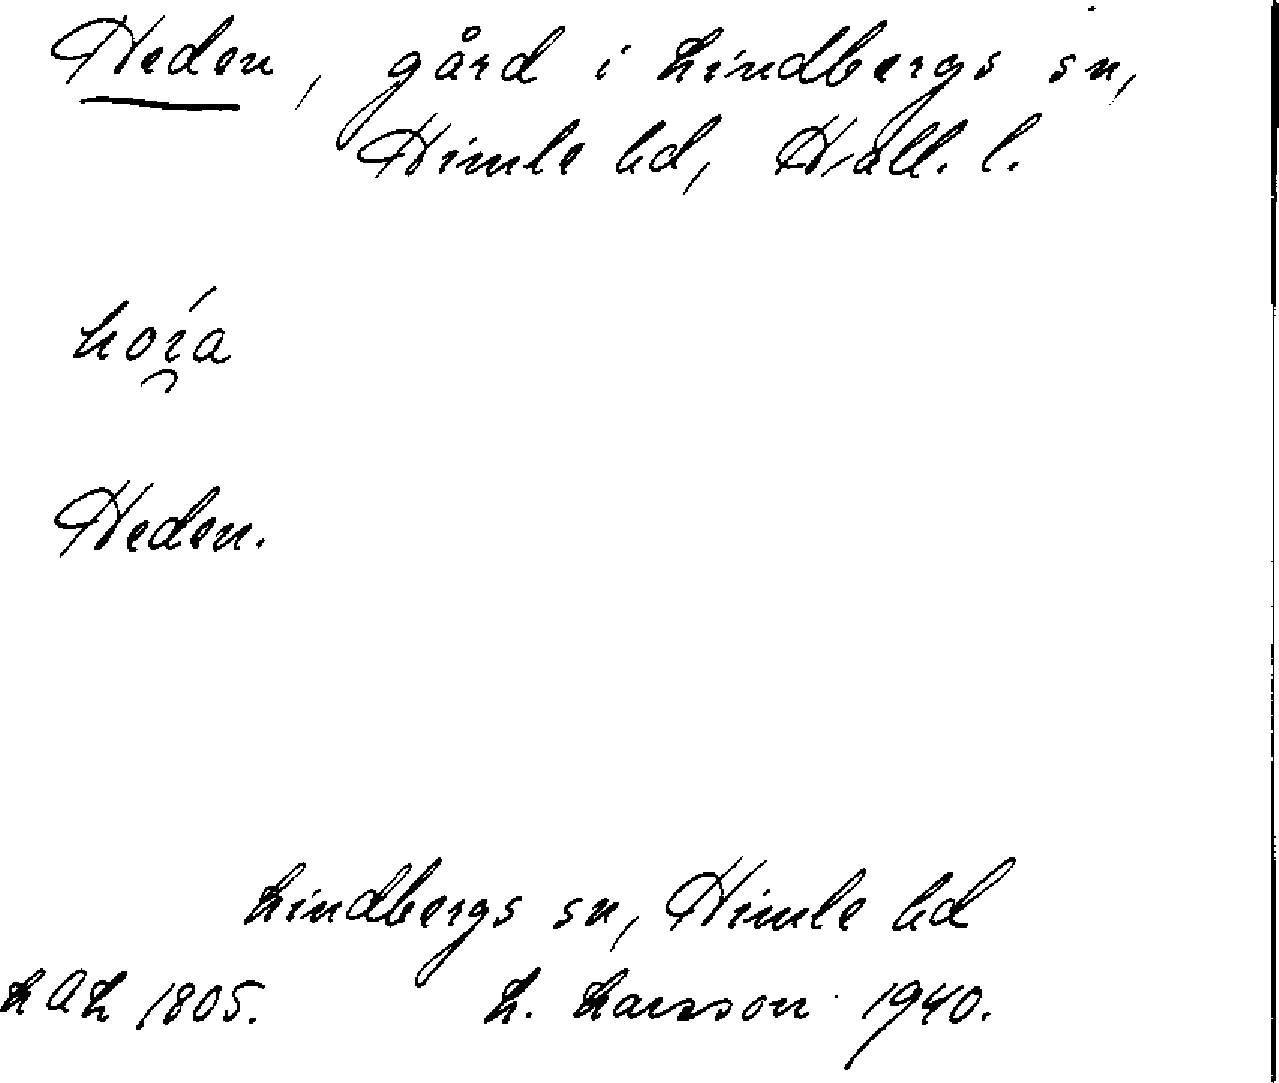 Heden, gård i Lindbergs sn,
Himle hd, Hall. l.
Heden.
Lindbergs sn, Himle hd
LAL 1805. L. Larsson 1940.